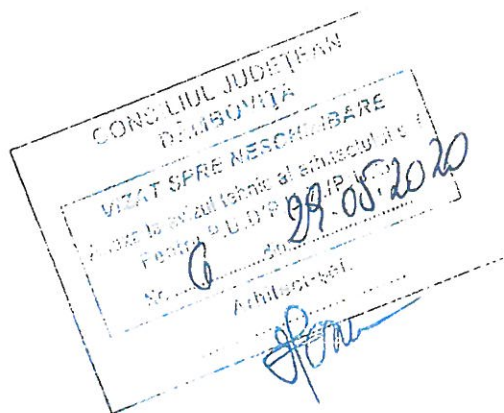 CONSILIUL JUDEȚEAN
DÂMBOVIȚA
VIZAT SPRE NESCHIMBARE
la avizul tehnic al arhitectului
Pentru P.U.D.
Nr. 6 din 29.05.2020
Arhitect-șef,